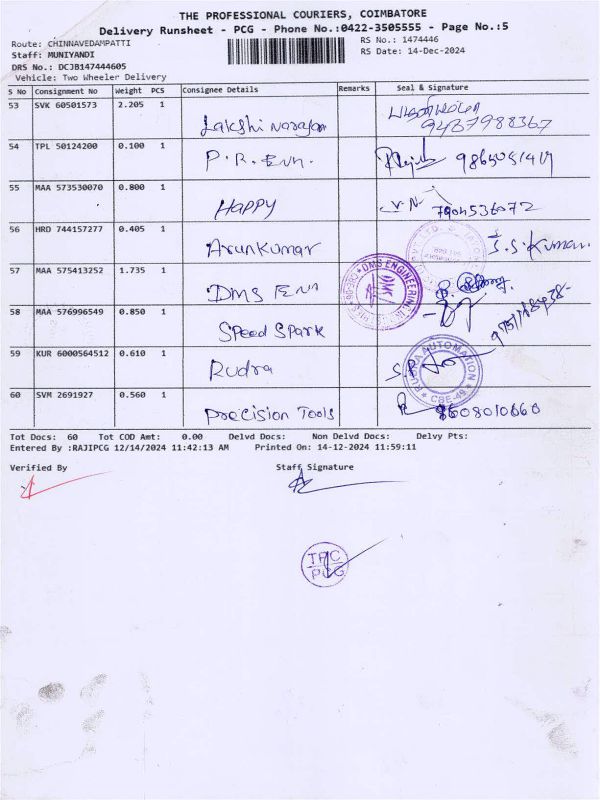 THE PROFESSIONAL COURIERS, COIMBATORE
Delivery Runsheet - PCG - Phone No.:0422-3505555 - Page No.:5
Route: CHINNAVEDAMPATTI RS No.: 1474446
Staff: MUNIYANDI RS Date: 14-Dec-2024
DRS No.: DCJB147444605
Vehicle: Two Wheeler Delivery
S No Consignment No Weight PCS Consignee Details Remarks Seal & Signature
53 SVK 60501573 2.205 1
Lakshi Narayan
54 TPL 50124200 0.100 1
P.R. Enn.
55 MAA 573530070 0.800 1
Happy 7904536072
56 HRD 744157277 0.405 1
ArunKumar J.S.Kumar
57 MAA 575413252 1.735 1
DMS Enn DMS ENGINEERING
58 MAA 576996549 0.850 1
Speed Spark
59 KUR 6000564512 0.610 1
Rudra RUDRA AUTOMATION CBE-49
60 SVM 2691927 0.560 1
Precision Tools 9608010660
Tot Docs: 60 Tot COD Amt: 0.00 Delvd Docs: Non Delvd Docs: Delvy Pts:
Entered By :RAJIPCG 12/14/2024 11:42:13 AM Printed On: 14-12-2024 11:59:11
Verified By Staff Signature
TPC
PCG